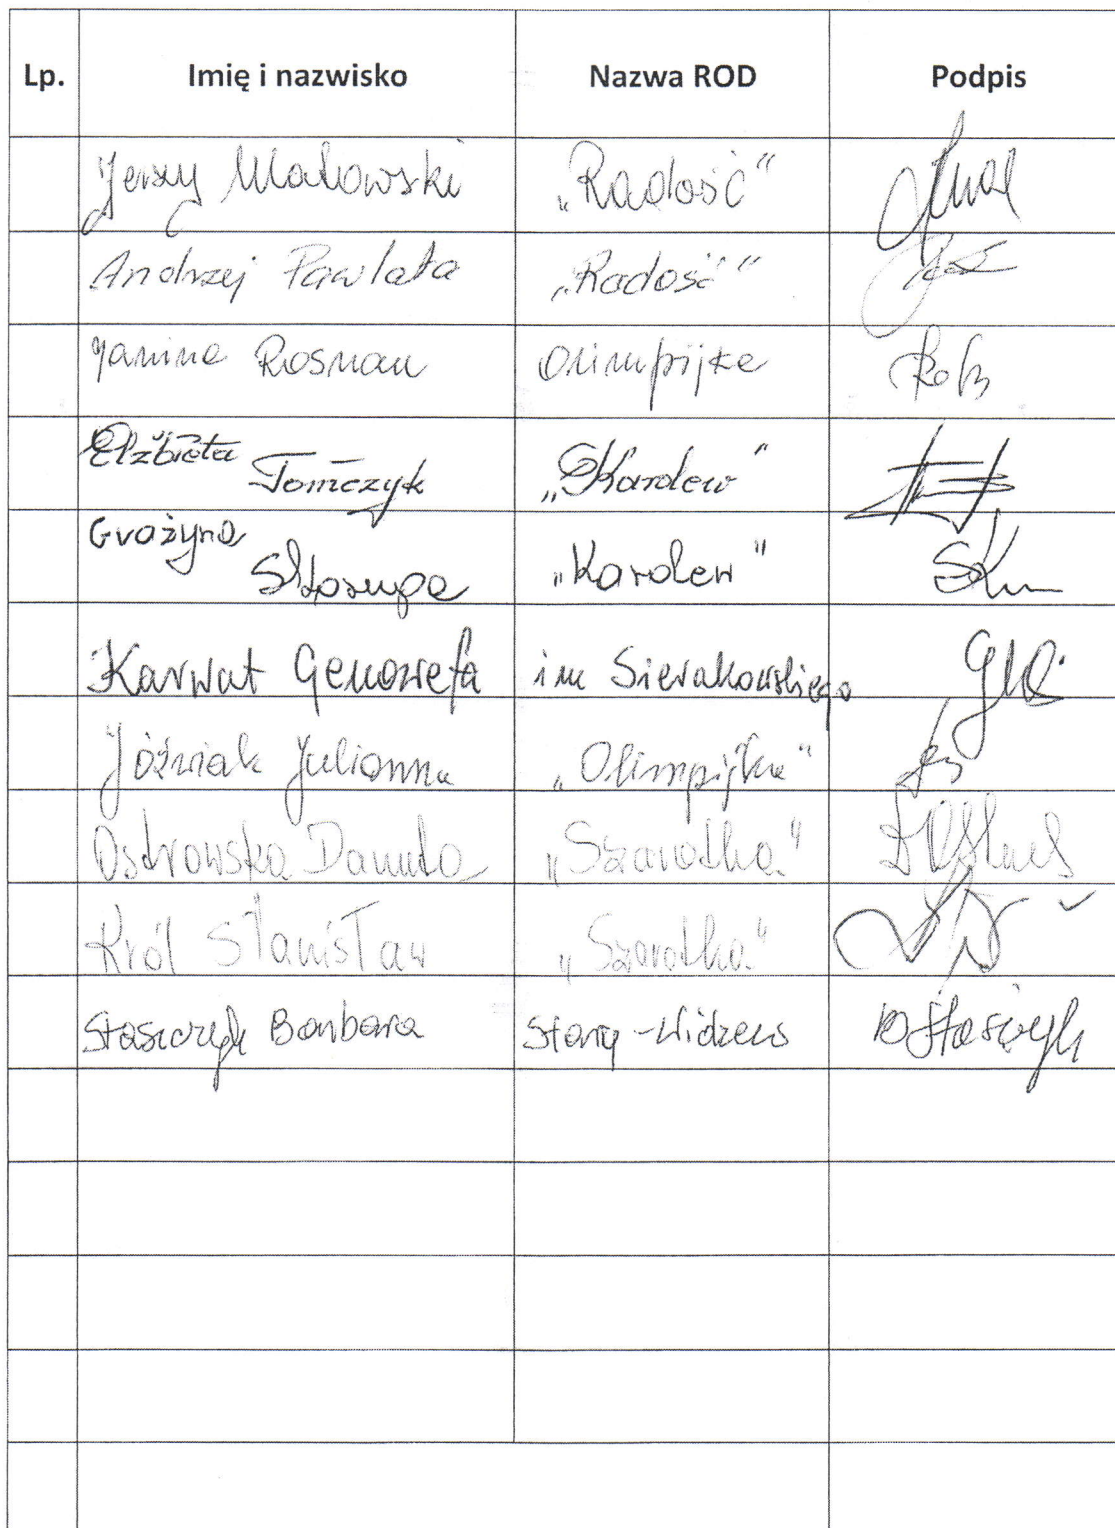 Lp. Imię i nazwisko Nazwa ROD Podpis
Jerzy Makowski „Radość"
Andrzej Pawlata „Radość"
Janina Rosman Olimpijka
Elżbieta Tomczyk „Karolew"
Grażyna Skorupa „Karolew"
Karwat Genowefa im Sierakowskiego
Jóźwiak Julianna „Olimpijka"
Ostrowska Danuta „Szarotka"
Król Stanisław „Szarotka"
Stasiczyk Barbara Stary-Widzew